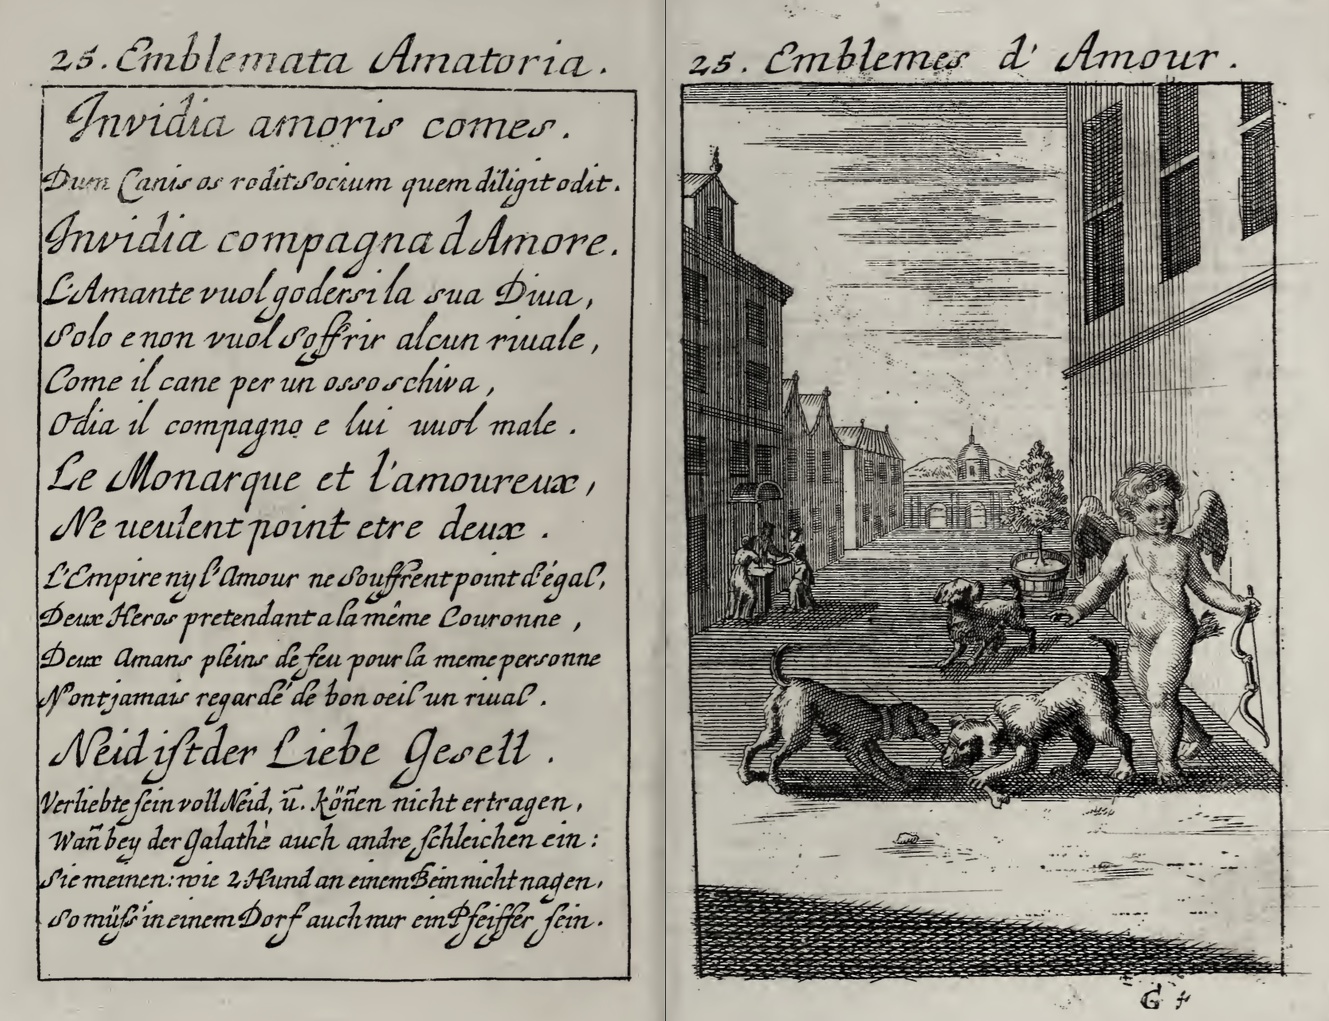 25. Emblemata Amatoria.
Invidia amoris comes.
Dum Canis os rodit socium quem diligit odit.
Invidia compagna d'Amore.
L'Amante vuol godersi la sua Diua,
Solo e non vuol soffrir alcun riuale,
Come il cane per un osso schiva,
Odia il compagno e lui uuol male.
Le Monarque et l'amoureux,
Ne ueulent point etre deux.
L'Empire ny l'Amour ne souffrent point d'égal,
Deux Heros pretendant a la même Couronne,
Deux Amans pleins de feu pour la meme personne
N'ont jamais regardé de bon oeil un riual.
Neid iſt der Liebe Gesell.
Verliebte ſein voll Neid, ū. kön̄en nicht ertragen,
Wan̄ bey der Galathè auch andre ſchleichen ein:
Sie meinen: wie 2 Hund an einem Bein nicht nagen,
So müſs in einem Dorf auch nur ein Pfeiffer ſein.
25. Emblemes d'Amour.
G 4